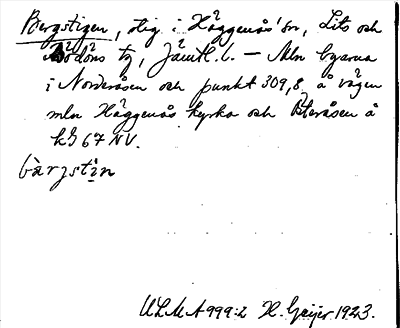 Bergstigen, stig i Häggenås' sn, Lits och
Rödöns tg, Jämtl. l. — Mln byarna
i Norderåsen och punkt 309,8 å vägen
mln Häggenås kyrka och Österåsen å
kg 67 NV.
bàrʒstìn
ULMA 999:2 H. Geijer 1923.